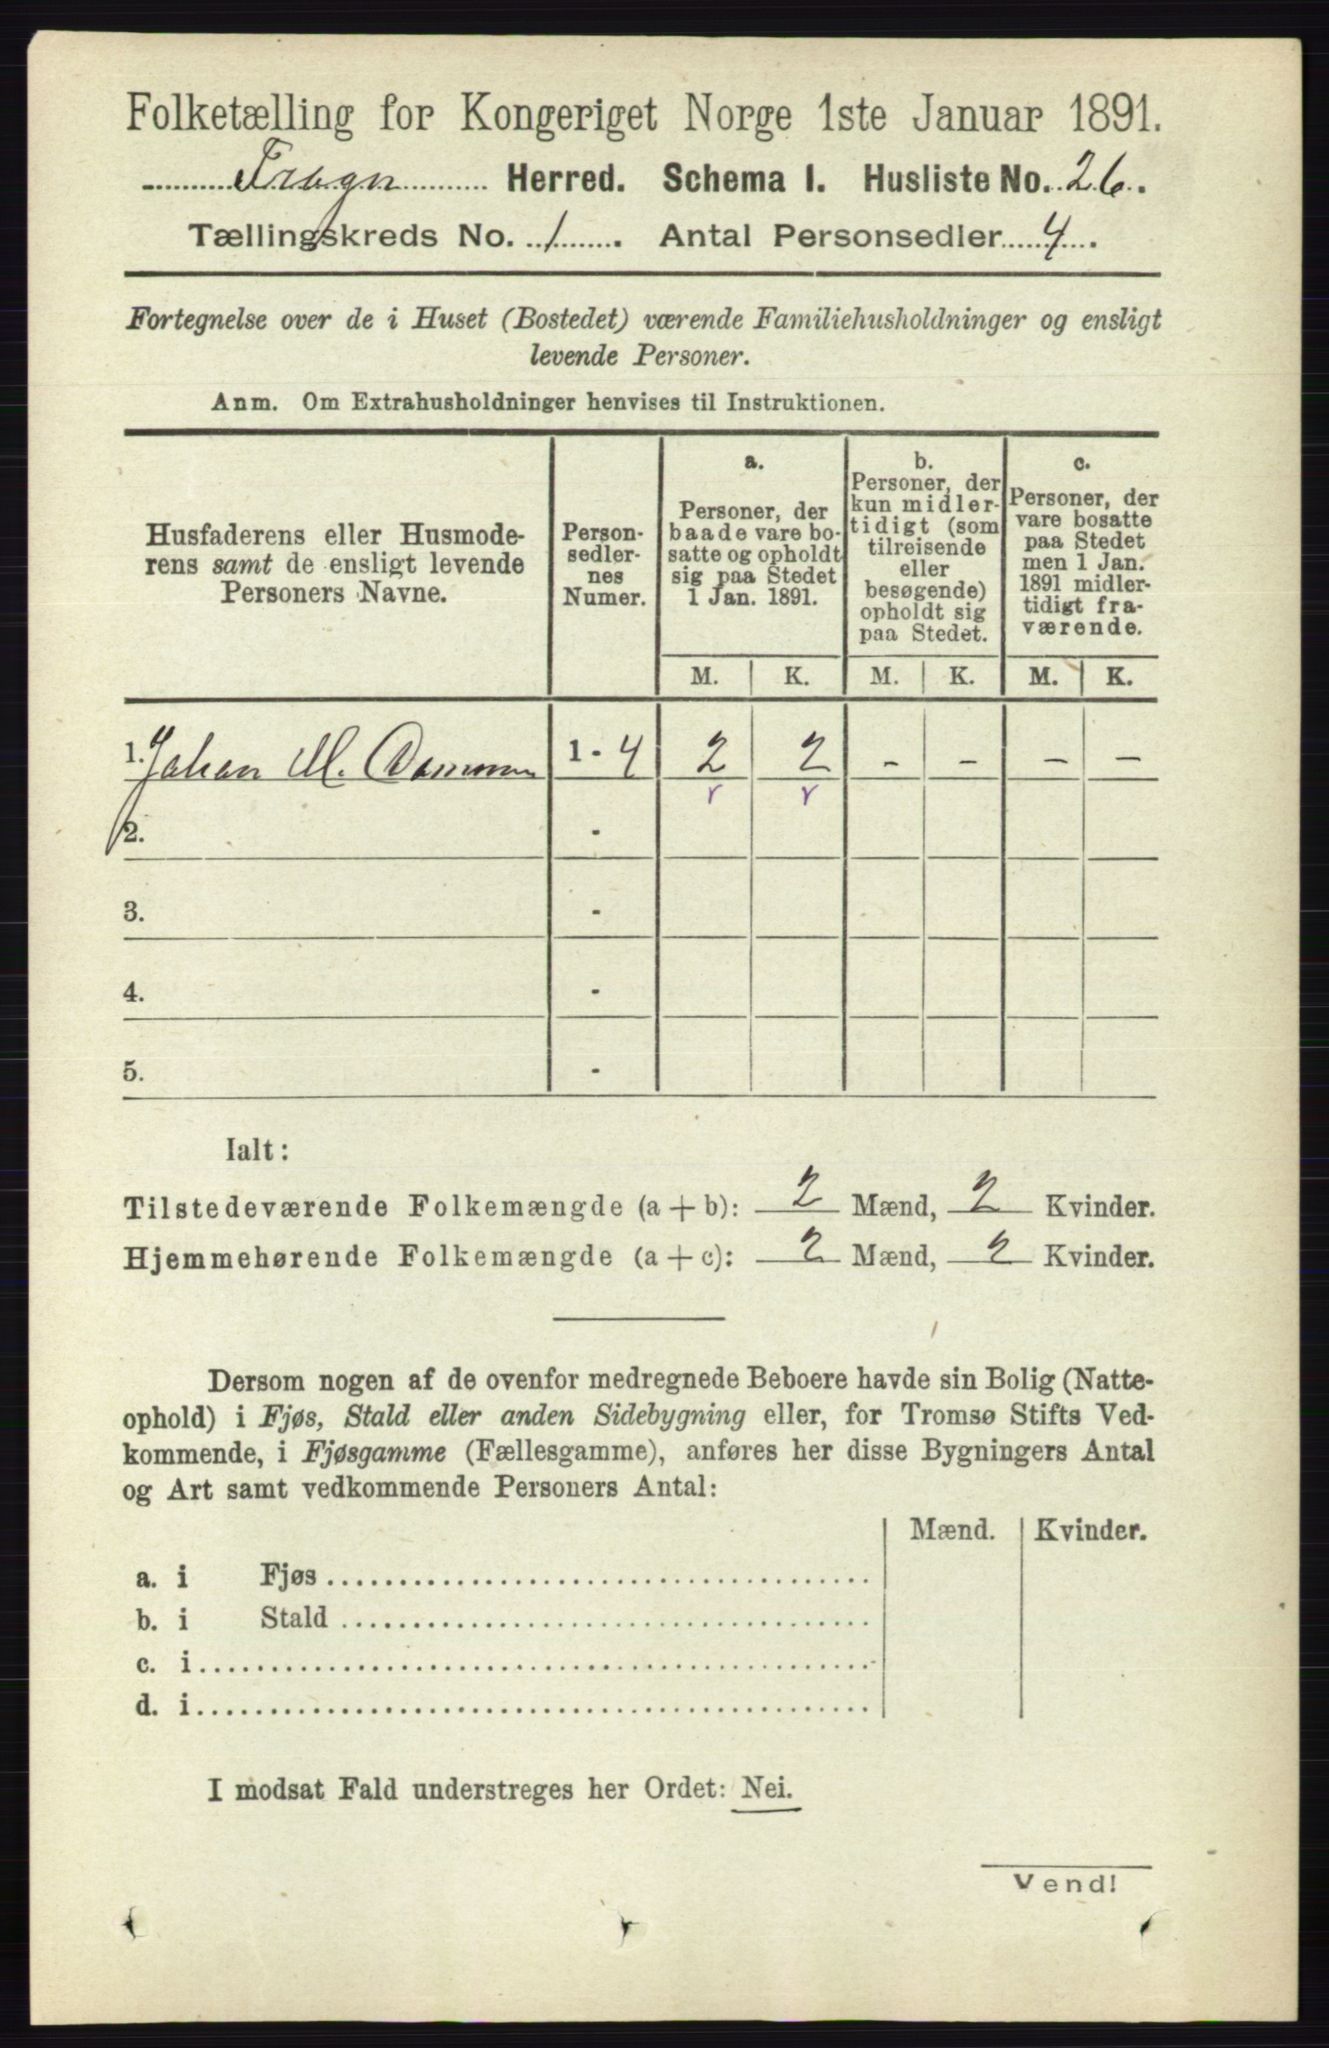 Folketælling for Kongeriget Norge 1ste Januar 1891.
Frogn Herred. Schema 1. Husliste No. 26.
Tællingskreds No. 1. Antal Personsedler 4.
Fortegnelse over de i Huset (Bostedet) værende Familiehusholdninger og ensligt
levende Personer.
Anm. Om Extrahusholdninger henvises til Instruktionen.
Husfaderens eller Husmode-
rens samt de ensligt levende
Personers Navne.
Person-
sedler-
nes
Numer.
a.
Personer, der
baade vare bo-
satte og opholdt
sig paa Stedet
1 Jan. 1891.
b.
Personer, der
kun midler-
tidigt (som
tilreisende
eller
besøgende)
opholdt sig
paa Stedet.
c.
Personer, der
vare bosatte
paa Stedet
men 1 Jan.
1891 midler-
tidigt fra-
værende.
M. K. M. K. M. K.
1. Johan M. 1 - 4 2 2 - - - -
r r
2. -
3. -
4. -
5. -
Ialt:
Tilstedeværende Folkemængde (a + b): 2 Mænd, 2 Kvinder.
Hjemmehørende Folkemængde (a + c): 2 Mænd, 2 Kvinder.
Dersom nogen af de ovenfor medregnede Beboere havde sin Bolig (Natte-
ophold) i Fjøs, Stald eller anden Sidebygning eller, for Tromsø Stifts Ved-
kommende, i Fjøsgamme (Fællesgamme), anføres her disse Bygningers Antal
og Art samt vedkommende Personers Antal:
Mænd. Kvinder.
a. i Fjøs
b. i Stald
c. i
d. i
I modsat Fald understreges her Ordet: Nei.
Vend!